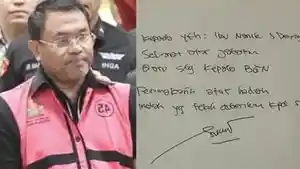 Kepada yth: Ibu Nanik S Deya
Selamat atas jabatan
Baru sbg Kepala BGN
Terimakasih atas hadiah
indah yg telah diberikan kpd s
45